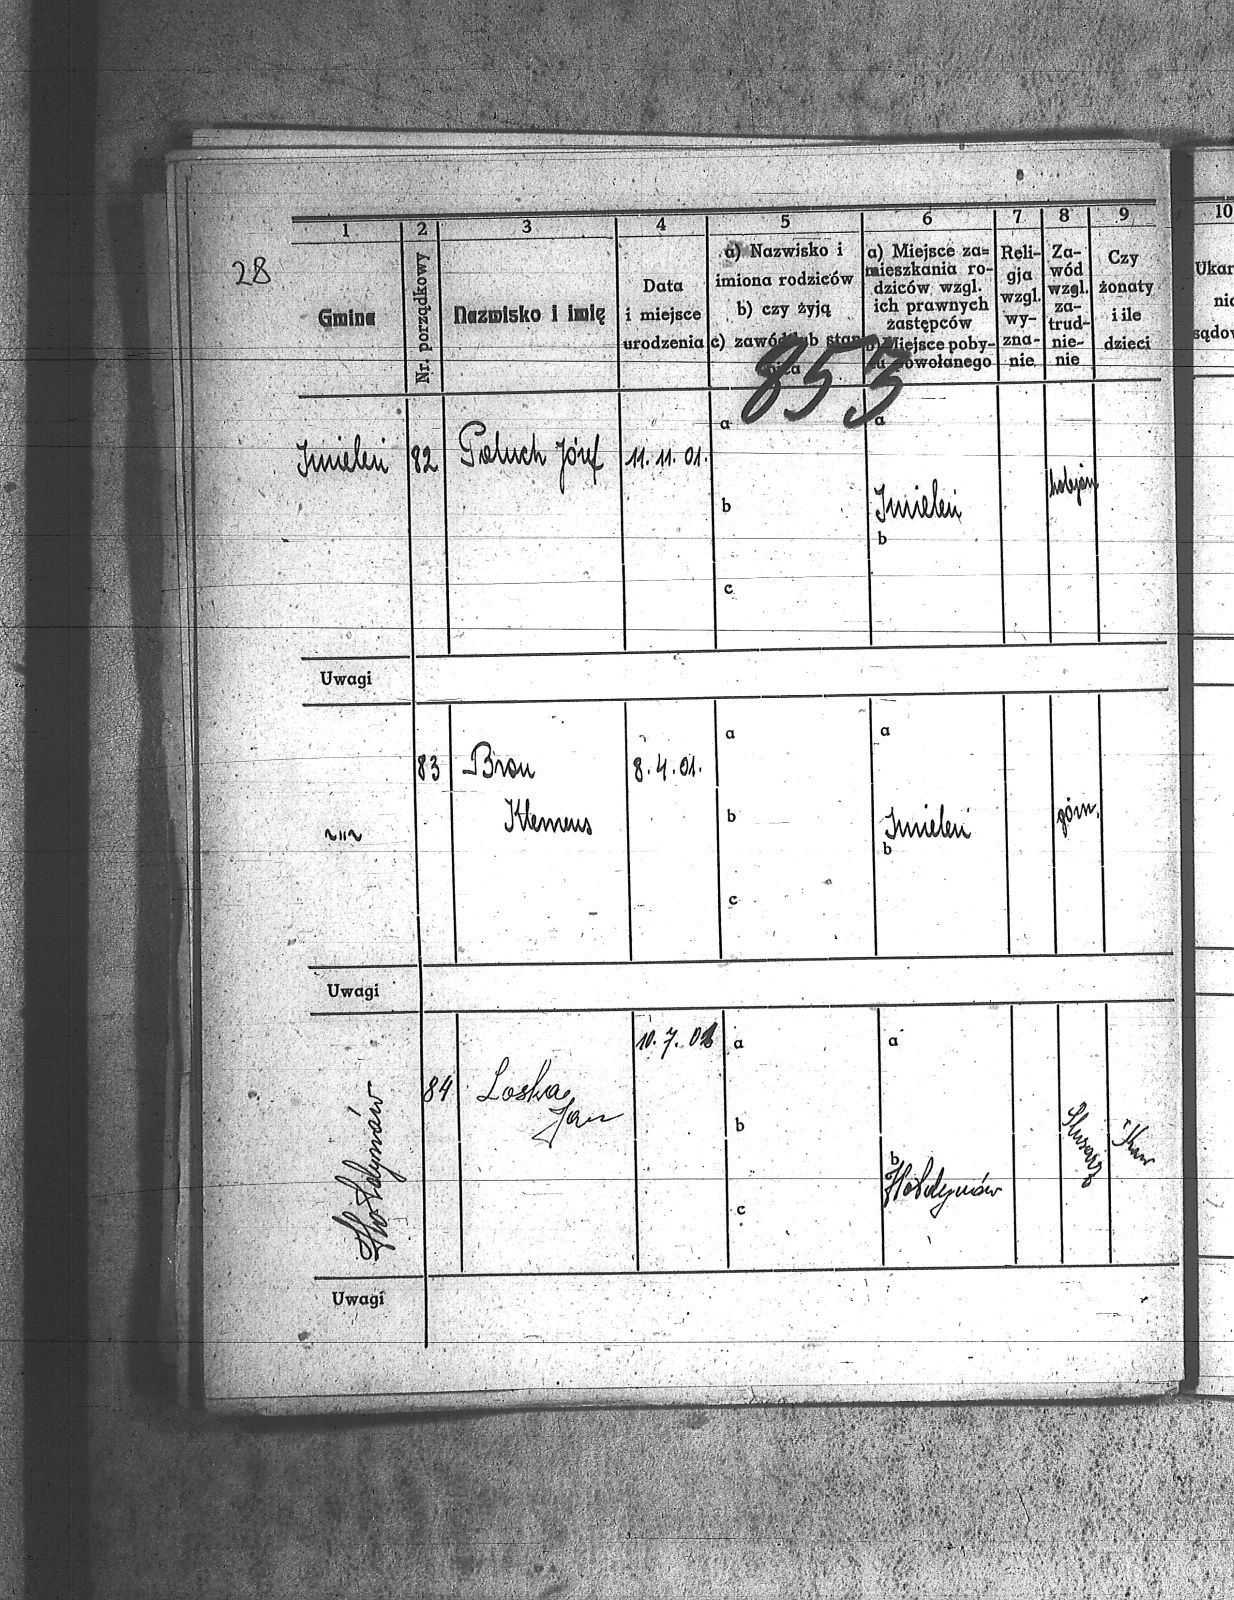 28
1
2
3
4
5
6
7
8
9
10
Gmina
Nr. porządkowy
Nazwisko i imię
Data
i miejsce
urodzenia
a) Nazwisko i
imiona rodziców
b) czy żyją
c) zawód lub stan
a) Miejsce za=
mieszkania ro-
dziców wzgl.
ich prawnych
zastępców
b) Miejsce poby-
tu powołanego
Reli-
gja
wzgl.
wy-
zna-
nie
Za-
wód
wzgl.
za-
trud-
nie-
nie
Czy
żonaty
i ile
dzieci
853
Imieleń 82 Paluch Józef 11.11.01.
a
b
c
a
Imieleń
b
Uwagi
~"~ 83 Bron
Klemens
8.4.01.
a
b
c
a
Imieleń
b
górn.
Uwagi
Hołdynów 84 Loska
Jan
10.7.01
a
b
c
a
b
Hołdynów
Ślusarz
Uwagi